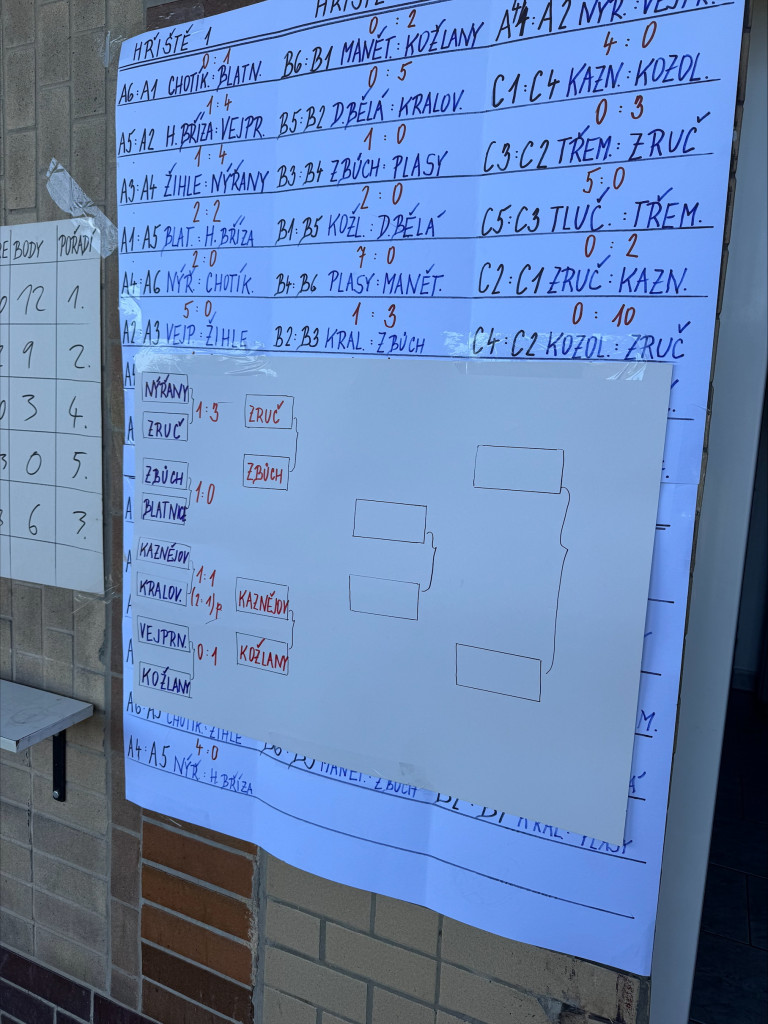 HŘIŠTĚ 1
0 : 1
A6:A1 CHOTÍK.:BLATN.
1:4
A5:A2 H.BŘÍZA:VEJPR.
1:4
A3:A4 ŽIHLE:NÝŘANY
2:2
A1:A5 BLAT.:H.BŘÍZA
2:0
A4:A6 NÝŘ.:CHOTÍK.
5:0
A2:A3 VEJP.:ŽIHLE
HŘIŠTĚ
0 : 2
B6:B1 MANĚT.:KOŽLANY
0 : 5
B5:B2 D.BĚLÁ:KRALOV.
1 : 0
B3:B4 ZBŮCH:PLASY
2 : 0
B1:B5 KOŽL.:D.BĚLÁ
7 : 0
B4:B6 PLASY:MANĚT.
1 : 3
B2:B3 KRAL.:ZBŮCH
A4:A2 NÝŘ.:VEJPR.
4 : 0
C1:C4 KAZN.:KOZOL.
0 : 3
C3:C2 TŘEM.:ZRUČ
5:0
C5:C3 TLUČ.:TŘEM.
0 : 2
C2:C1 ZRUČ:KAZN.
0 : 10
C4:C2 KOZOL.:ZRUČ
BODY POŘADÍ
12 1.
9 2.
3 4.
0 5.
6 3.
NÝŘANY
1:3
ZRUČ
ZBŮCH
1:0
BLATNICE
KAZNĚJOV
1:1
KRALOV.
(2:1)p
VEJPRN.
0:1
KOŽLANY
ZRUČ
ZBŮCH
KAZNĚJOV
KOŽLANY
CHOTÍK.:ŽIHLE
4:0
A4:A5 NÝŘ.:H.BŘÍZA
MANĚT.:ZBŮCH
KRAL.:PLASY